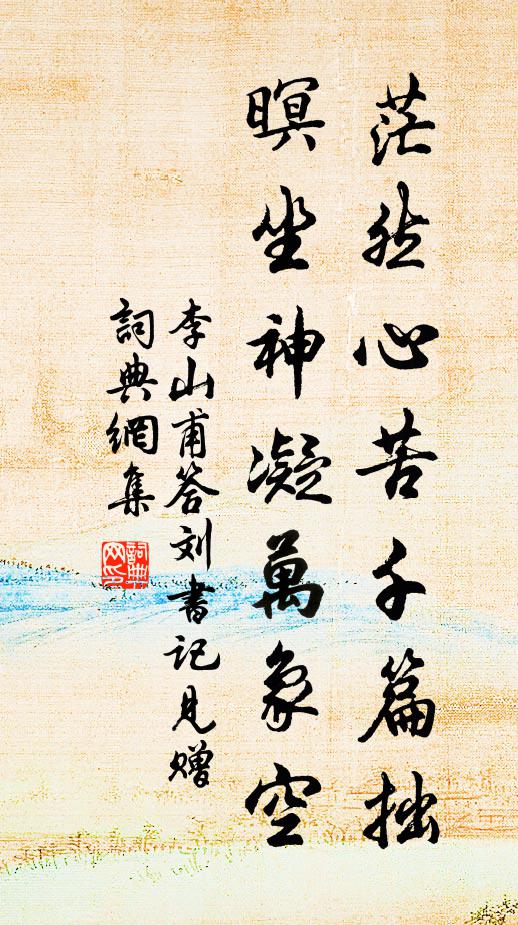 茫然心苦千篇拙
暝坐神凝萬象空
李山甫答刘書记見赠
詞典網集
詞典
网